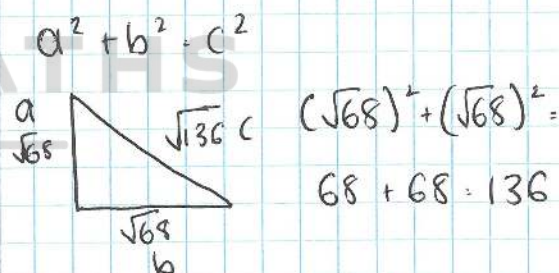 a² + b² = c²
a
√68
√136 c
√68
b
(√68)² + (√68)² =
68 + 68 = 136